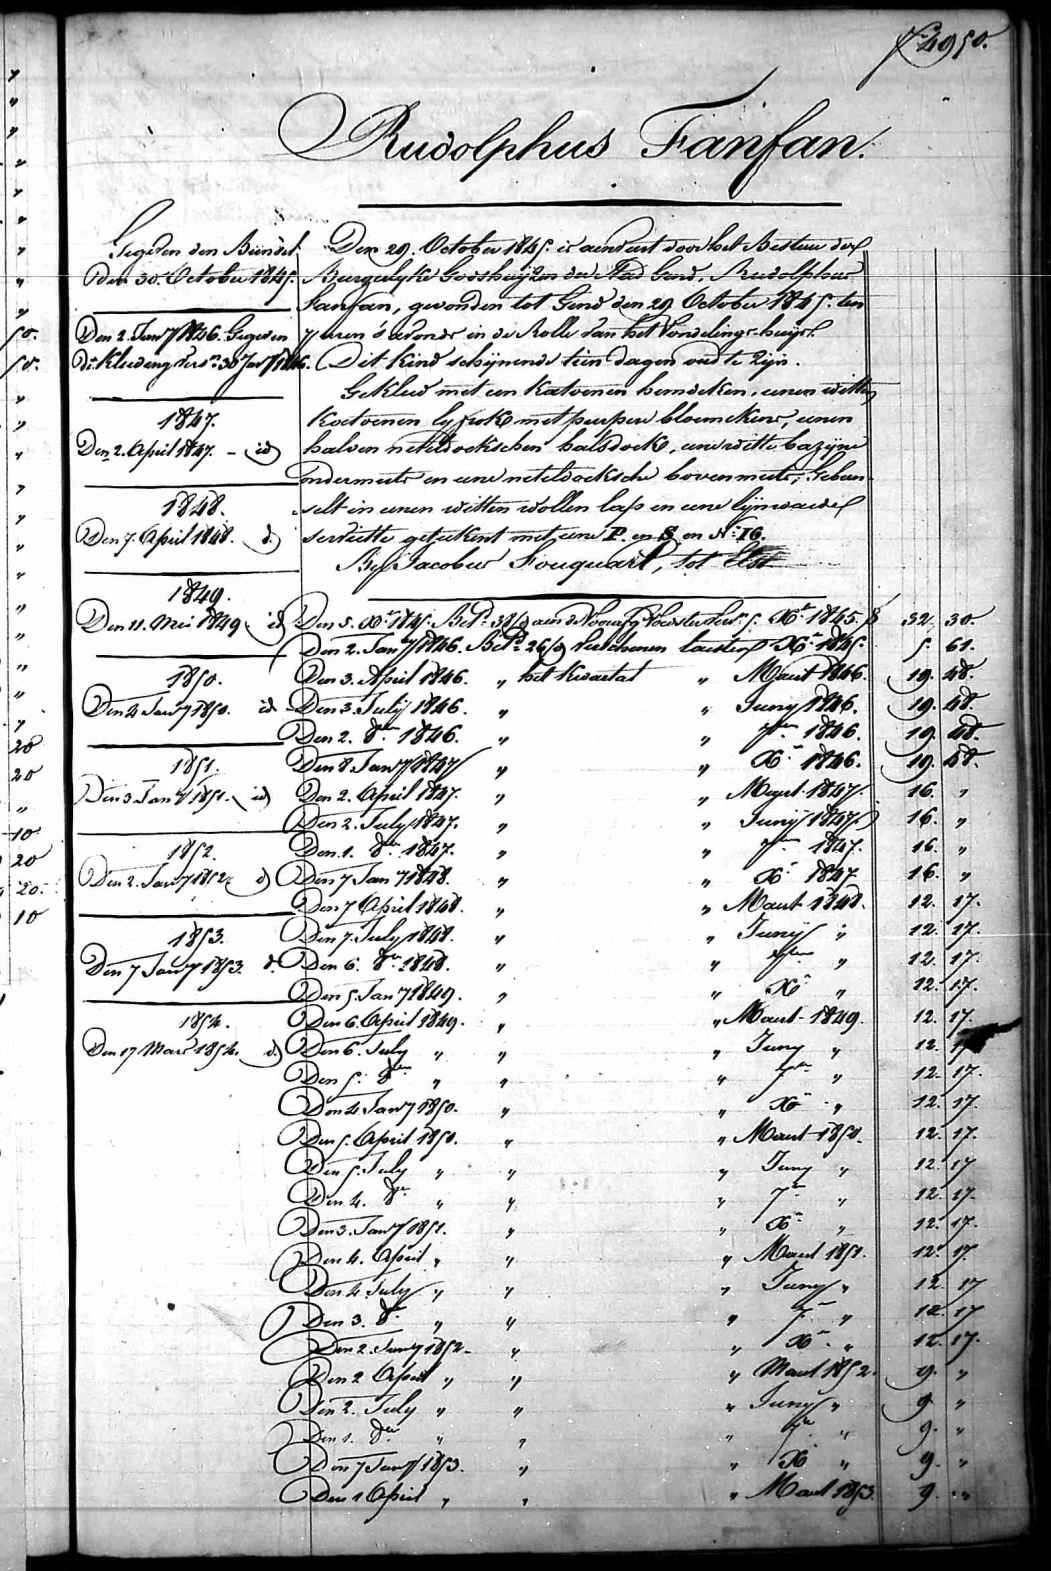 N.° 4950.
Rudolphus Fanfan.
Gegeven den Bundel.
Den 30. October 1845.
Den 2. Jan.y 1846. Gegeven
de Kleeding vers.n 30 Jan.y 1846.
1847.
Den 2. April 1847. - id
1848.
Den 7. April 1848. d.
1849.
Den 11. Mei 1849 id
1850.
Den 4 Jan.y 1850. id
1851.
Den 3 Jan.y 1851. id
1852.
Den 2. Jan.y 1852. d
1853.
Den 7 Jan.y 1853. d.
1854.
Den 17 Maart 1854. d
Den 29. October 1845. is aenveert door het Bestuer der
Burgerlyke Godshuyzen der Stad Gend, Rudolphus
Fanfan, gevonden tot Gend den 29 October 1845. ten
7 uren s'avonds in de Rolle van het Vondelings-huys.
Dit Kind schynende tien dagen oud te zyn.
Gekleed met een Katoenen hemdeken, eenen witten
Katoenen lyfrok met purper bloemekens, eenen
halven neteldoekschen halsdoek, eene witte bazyne
ondermuts en eene neteldoeksche bovenmuts, Gebun-
selt in eenen witten wollen lap en eene lynwaede
serviette geteekent met eene P. en S. en N.° 16.
By Jacobus Fouquaert, tot Elst
Den 5. X.r 1845. Bet.d 38/d aen de Voorz. Voedster X.r 1845. 32. 30.
Den 2. Jan.y 1846. Bet.d 26/d X.r 1845. 5. 61.
Den 3. April 1846. " het Kwartaal " Maart 1846. 19. 48.
Den 3. July 1846. " " Juny 1846. 19. 48.
Den 2. 8.er 1846. " " 7.er 1846. 19. 48.
Den 8. Jan.y 1847 " " X.r 1846. 19. 48.
Den 2. April 1847. " " Maart 1847. 16. "
Den 2. July 1847. " " Juny 1847. 16. "
Den 1. 8.er 1847. " " 7.er 1847. 16. "
Den 7 Jan.y 1848. " " X.r 1847 16. "
Den 7 April 1848. " " Maart 1848. 12. 17.
Den 7. July 1848. " " Juny " 12. 17.
Den 6. 8.er 1848. " " 7.er " 12. 17.
Den 5. Jan.y 1849. " " X.r " 12. 17.
Den 6. April 1849. " " Maart 1849. 12. 17.
Den 6. July " " " Juny " 12.
Den 5. 8.er " " " 7.er " 12. 17.
Den 4 Jan.y 1850. " " X.r " 12. 17.
Den 5. April 1850. " " Maart 1850. 12. 17.
Den 5. July " " " Juny " 12. 17
Den 4. 8.er " " " 7.er " 12. 17.
Den 3. Jan.y 1851. " " X.r " 12. 17.
Den 4. April " " " Maart 1851. 12. 17.
Den 4. July " " " Juny " 12 17
Den 3. 8.er " " " 7.er " 12. 17
Den 2. Jan.y 1852. " " X.r " 12. 17.
Den 2 April " " " Maart 1852. 9. "
Den 2. July " " " Juny " 9 "
Den 1. 8.er " " " 7.er " 9. "
Den 7 Jan.y 1853. " " X.r " 9. "
Den 1 April " " " Maart 1853 9. "